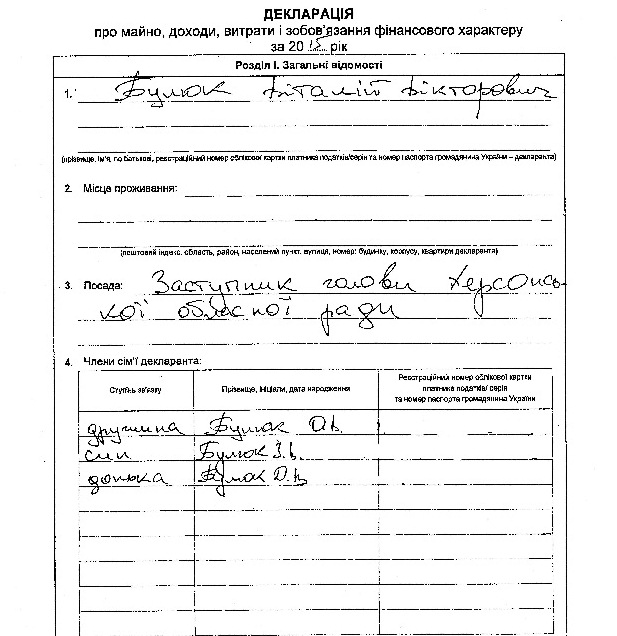 ДЕКЛАРАЦІЯ
про майно, доходи, витрати і зобов'язання фінансового характеру
за 2015 рік
Розділ I. Загальні відомості
1. Булюк Віталій Вікторович
(прізвище, ім'я, по батькові, реєстраційний номер облікової картки платника податків/серія та номер паспорта громадянина України – декларанта)
2. Місце проживання:
(поштовий індекс, область, район, населений пункт, вулиця, номер: будинку, корпусу, квартири декларанта)
3. Посада: Заступник голови Херсонсь-
кої обласної ради
4. Члени сім'ї декларанта:
Ступінь зв'язку Прізвище, ініціали, дата народження Реєстраційний номер облікової картки
платника податків/ серія
та номер паспорта громадянина України
дружина Булюк О.В.
син Булюк З.В.
донька Булюк Д.В.